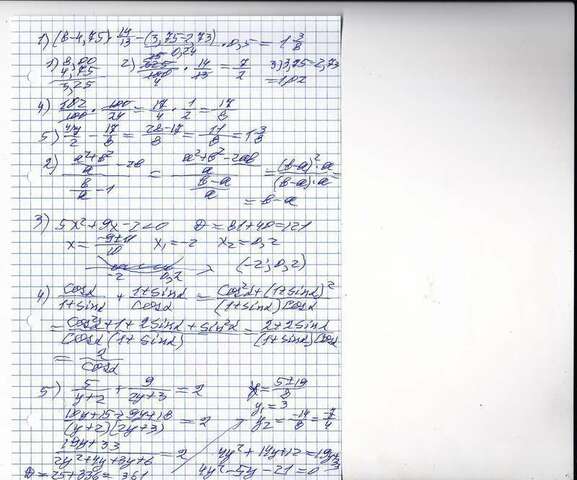 1) (8-4,75) · 14/13 - (3,75-2,73)/0,24 · 0,5 = 1 3/8
1) 8,00 4,75 3,25 2) 325/100 · 14/13 = 7/2 3) 3,75-2,73 = 1,02
4) 102/100 · 100/24 = 17/4 · 1/2 = 17/8
5) 7/2 - 17/8 = 28-17/8 = 11/8 = 1 3/8
2) (a²+b²/a - 2b)/(b/a - 1) = (a²+b²-2ab/a)/(b-a/a) = (b-a)²·a/(b-a)·a =
= b-a
3) 5x²+9x-2<0 D = 81+40=121
x = -9±11/10 x₁=-2 x₂=0,2
-2 0,2 (-2;0,2)
4) cosα/1+sinα + 1+sinα/cosα = cos²α+(1+sinα)²/(1+sinα)cosα
= cos²α+1+2sinα+sin²α/cosα(1+sinα) = 2+2sinα/(1+sinα)cosα
= 2/cosα
5) 5/y+2 + 9/2y+3 = 2 y = 5±19/8
10y+15+9y+18/(y+2)(2y+3) = 2 y₁=3 y₂ = -14/8 = -7/4
19y+33/2y²+4y+3y+6 = 2 4y²+14y+12=19y+33
D=25+336=361 4y²-5y-21=0